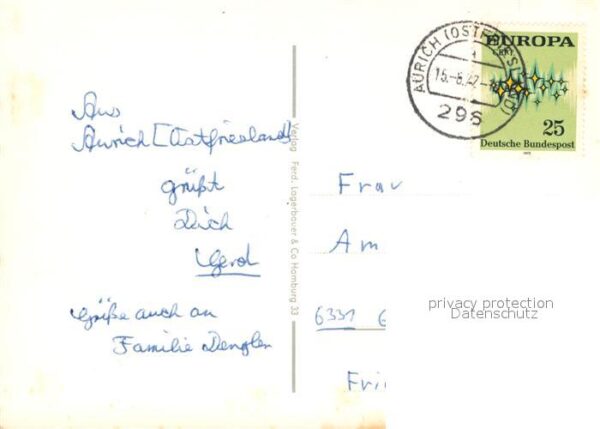 Aus
Aurich [Ostfriesland]
grüßt
Dich
Gerd
Grüße auch an
Familie Dengler
Verlag Ferd. Lagerbauer & Co Hamburg 33
AURICH (OSTFRIESLAND)
1
15.-6.72
296
EUROPA
CEPT
25
Deutsche Bundespost
1972
Frau
Am
6331 G
Fri
privacy protection
Datenschutz